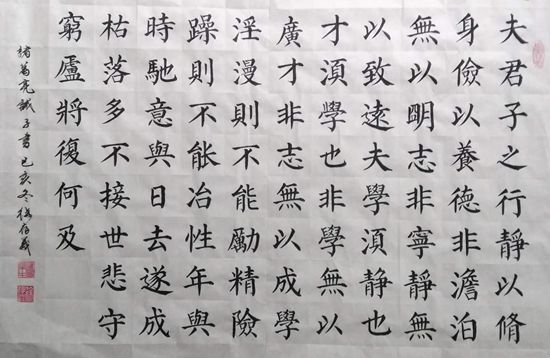 夫君子之行靜以脩
身儉以養德非澹泊
無以明志非寧靜無
以致遠夫學湏靜也
才湏學也非學無以
廣才非志無以成學
淫漫則不能勵精險
躁則不能冶性年與
時馳意與日去遂成
枯落多不接世悲守
窮廬將復何及
諸葛亮誡子書己亥冬